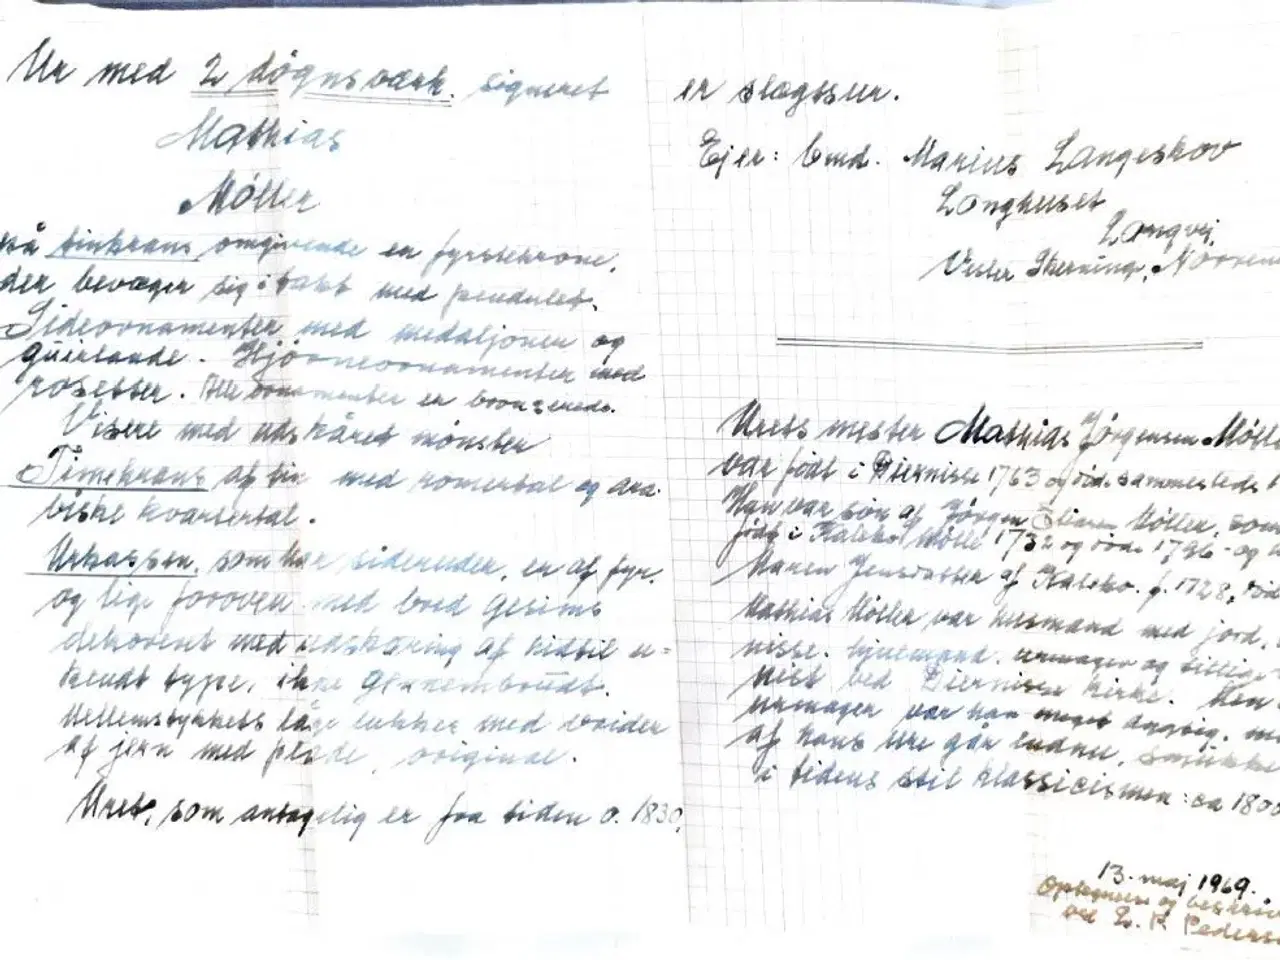 Ur med 2 døgnsværk. signeret
Mathias
Möller
på tinkrans omgivende en fyrstekrone,
der bevæger sig i takt med pendulet.
Sideornamenter med medaljoner og
guirlande. Hjørneornamenter med
rosetter. Alle ornamenter er bronzerede.
Visere med udskåret mønster
Timekrans af tin med romertal og ara-
biske kvartertal.
Urkassen, som har sideruder, er af fyr.
og lige foroven med bred gesims
dekoreret med udskæring af hidtil u=
kendt type, ikke gennembrudt.
Mellemstykkets låge lukker med vrider
af jern med plade, original.
Uret, som antagelig er fra tiden o. 1830,
er slagsur.
Ejer: Gmd. Marius Langeskov
Langhuset
Langvej,
Vester Skerning,
Urets mester Mathias Jørgensen Mölle
var født i Diernisse 1763 og død sammesteds
Han var søn af Jørgen Möller, som
født i Kaleko Mölle 1732 og døde 1796 - og
Maren Jensdatter af Kaleko. f. 1728, død
Mathias Möller var husmand med jord,
nisse. hjulmand. urmager og tillige
nist ved Diernisse kirke. Men
urmager var han meget dygtig.
af hans ure går endnu, smukke
i tidens stil klassicismen: ca 1800
13. maj 1969.
Optegnelse og beskriv
ved L. P. Peders